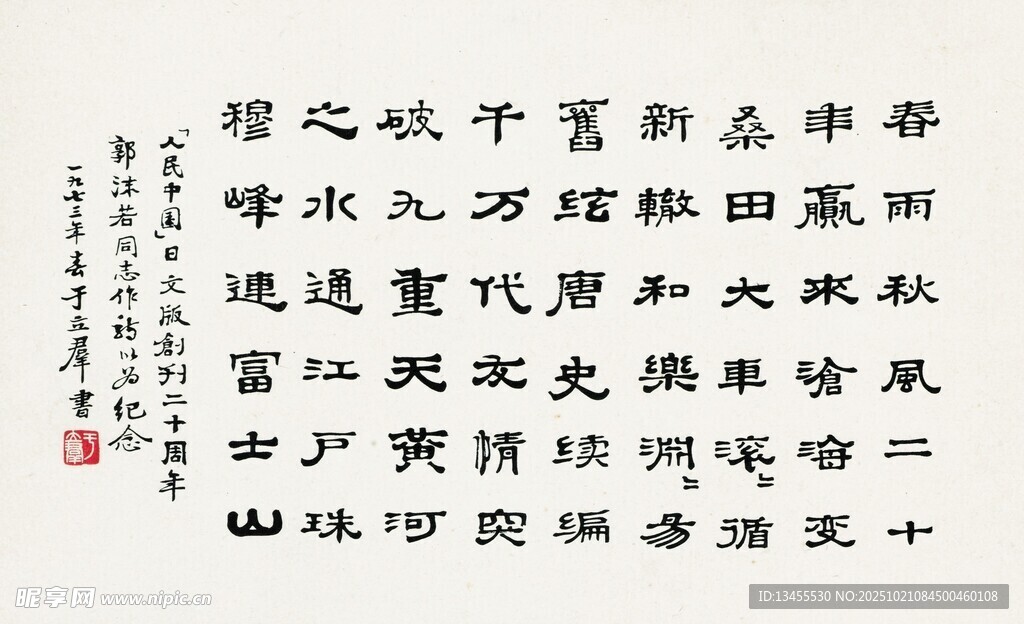 春雨秋風二十
年贏來滄海变
桑田大車滚〻循
新轍和樂渊〻易
舊絃唐史续编
千万代友情突
破九重天黄河
之水通江户珠
穆峰連富士山
「人民中国」日文版創刊二十周年
郭沫若同志作詩以为纪念
一九七三年春于立羣書
于立羣
昵享网 www.nipic.cn
ID:13455530 NO:20251021084500460108